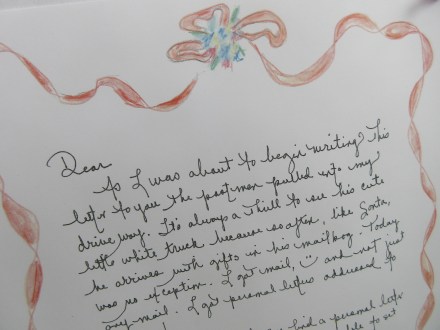 Dear
As I was about to begin writing this
letter to you the postman pulled into my
drive way. It's always a thrill to see his cute
little white truck because so often, like Santa,
he arrives with gifts in his mailbag. Today
was no exception. I got mail, ☺ and not just
any mail. I got personal letters addressed to
find a personal letter
to set